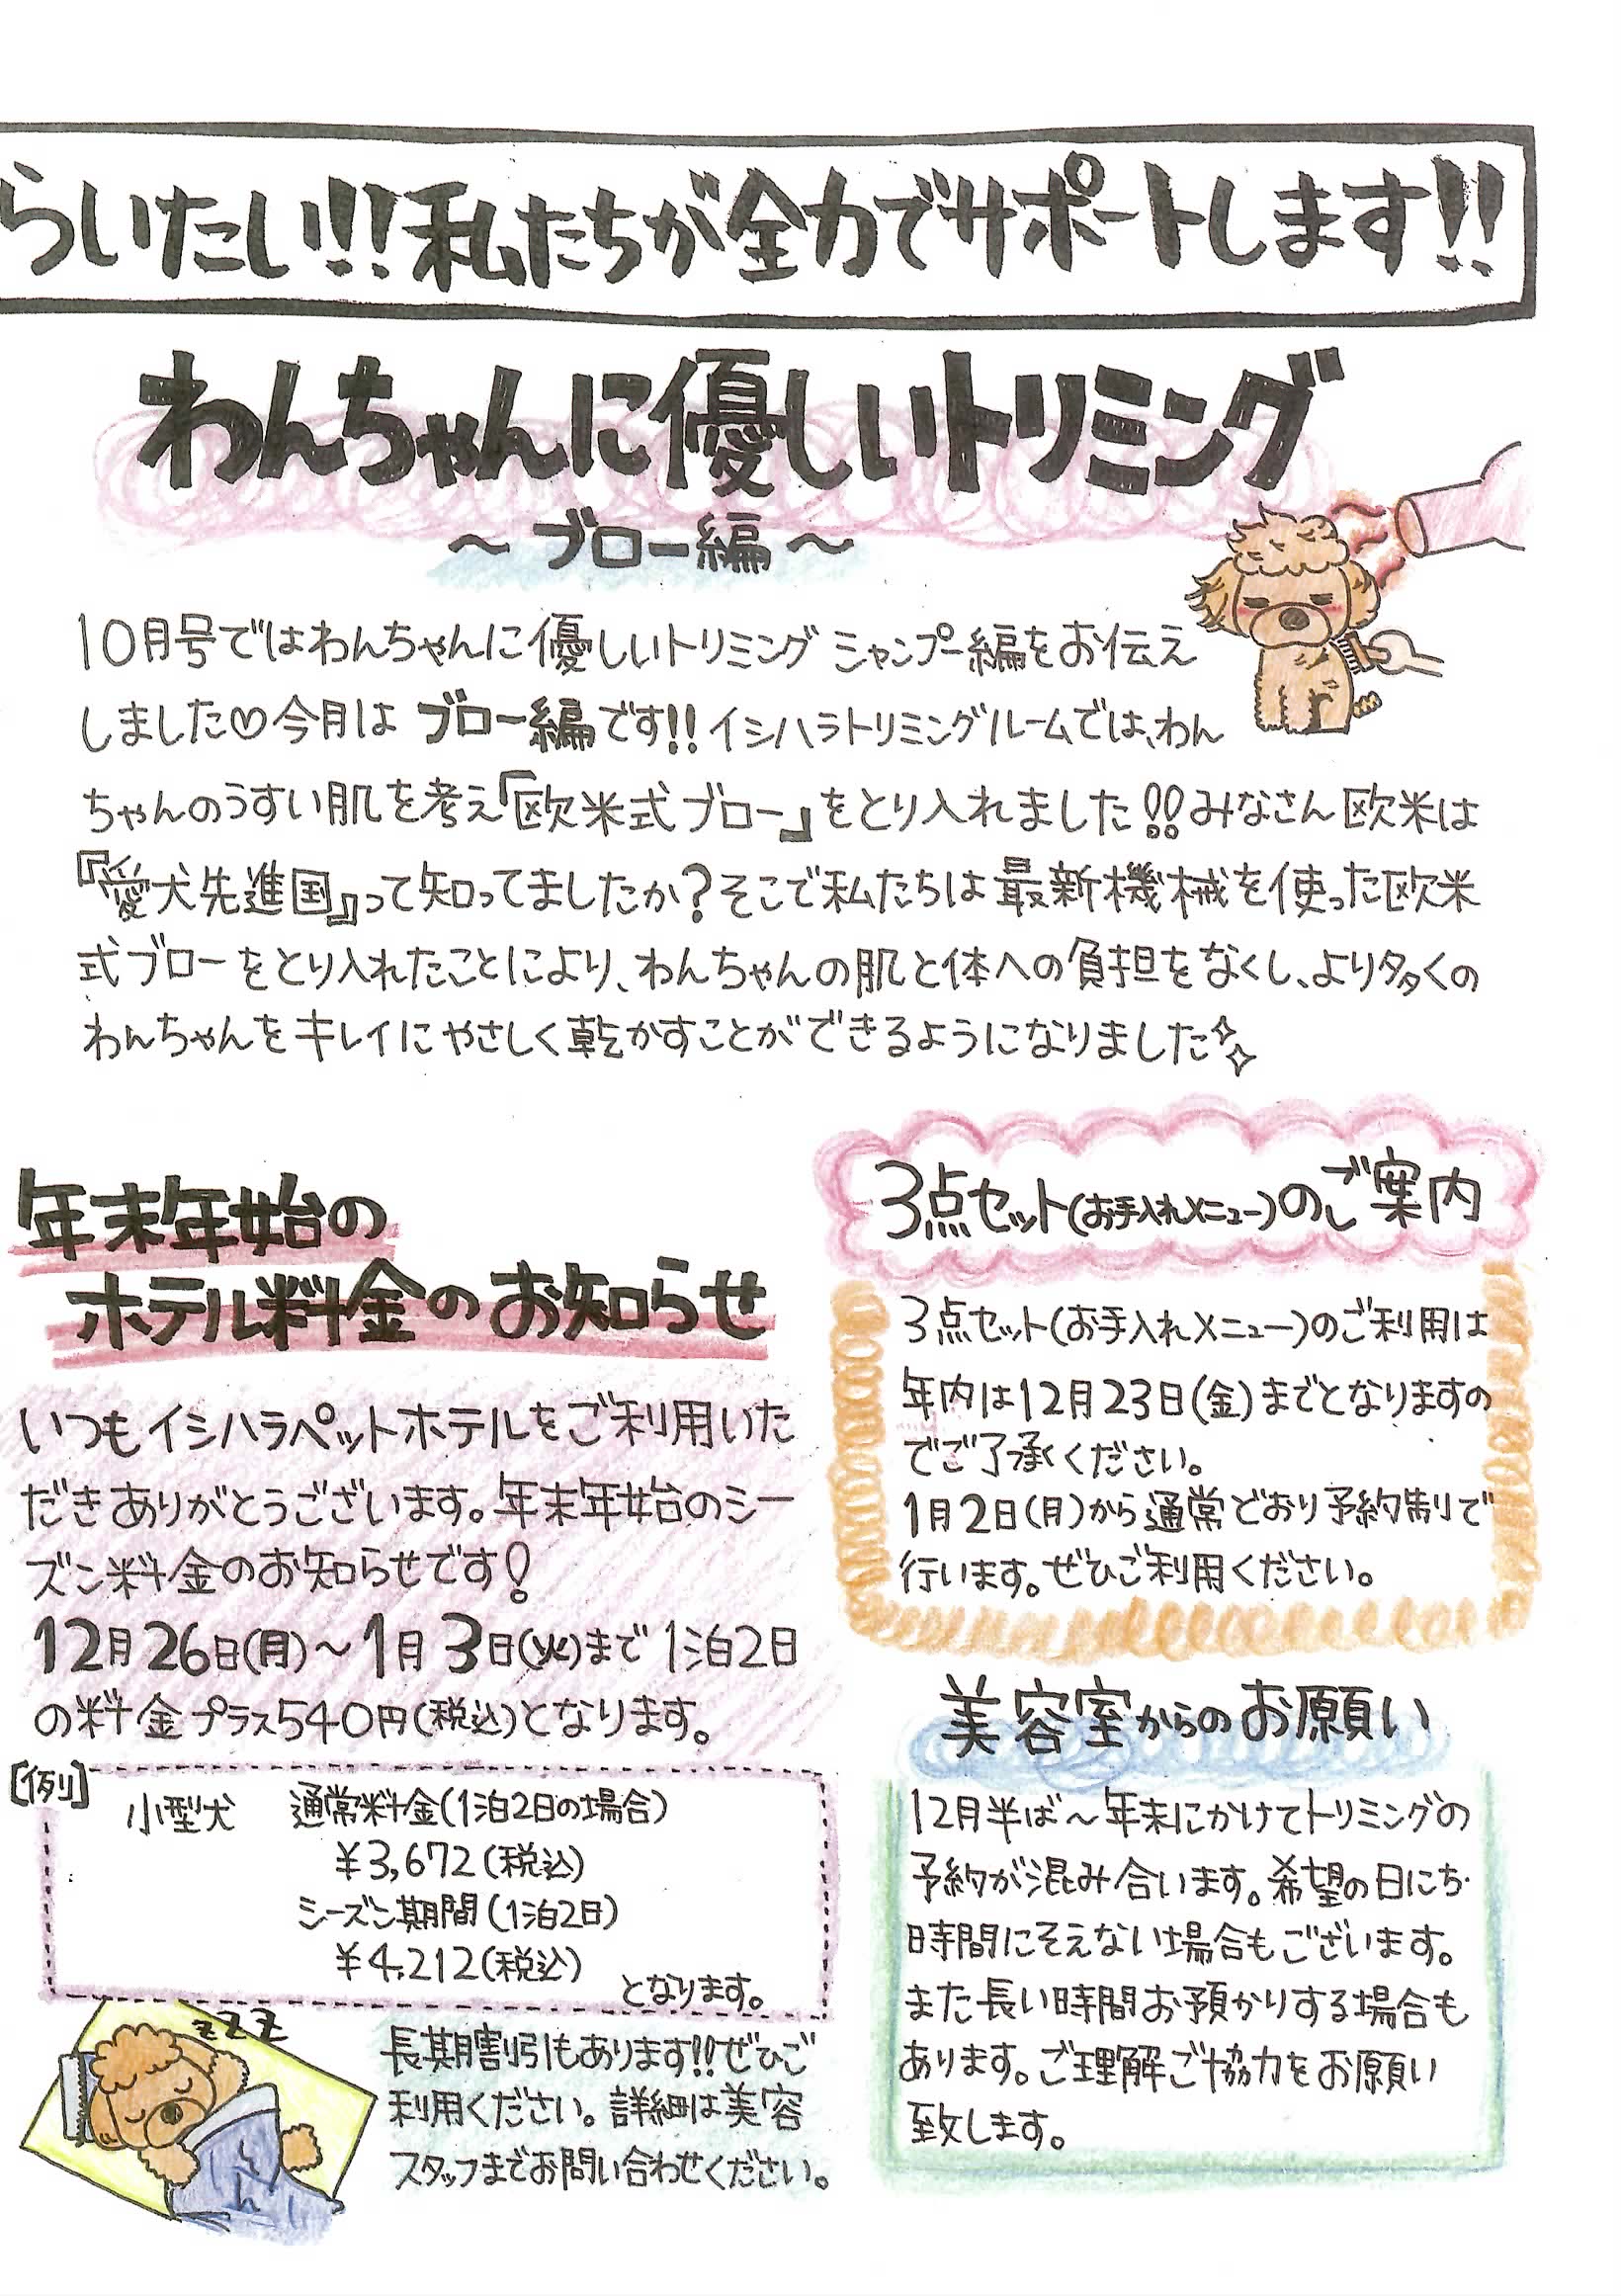 らいたい!!私たちが全力でサポートします!!
わんちゃんに優しいトリミング
～ブロー編～
10月号ではわんちゃんに優しいトリミング シャンプー編をお伝え
しました♡今月は ブロー編です!!イシハラトリミングルームでは、わん
ちゃんのうすい肌を考え「欧米式ブロー」をとり入れました!!みなさん欧米は
『愛犬先進国』って知ってましたか?そこで私たちは最新機械を使った欧米
式ブローをとり入れたことにより、わんちゃんの肌と体への負担をなくし、より多くの
わんちゃんをキレイにやさしく乾かすことができるようになりました✨
年末年始の
ホテル料金のお知らせ
いつもイシハラペットホテルをご利用いた
だきありがとうございます。年末年始のシー
ズン料金のお知らせです!
12月26日(月)～1月3日(火)まで1泊2日
の料金プラス540円(税込)となります。
[例]
小型犬 通常料金(1泊2日の場合)
¥3,672(税込)
シーズン期間(1泊2日)
¥4,212(税込)
となります。
zzz
長期割引もあります!!ぜひご
利用ください。詳細は美容
スタッフまでお問い合わせください。
3点セット(お手入れメニュー)のご案内
3点セット(お手入れメニュー)のご利用は
年内は12月23日(金)までとなりますの
でご了承ください。
1月2日(月)から通常どおり予約制で
行います。ぜひご利用ください。
美容室からのお願い
12月半ば～年末にかけてトリミングの
予約が混み合います。希望の日にち・
時間にそえない場合もございます。
また長い時間お預かりする場合も
あります。ご理解ご協力をお願い
致します。